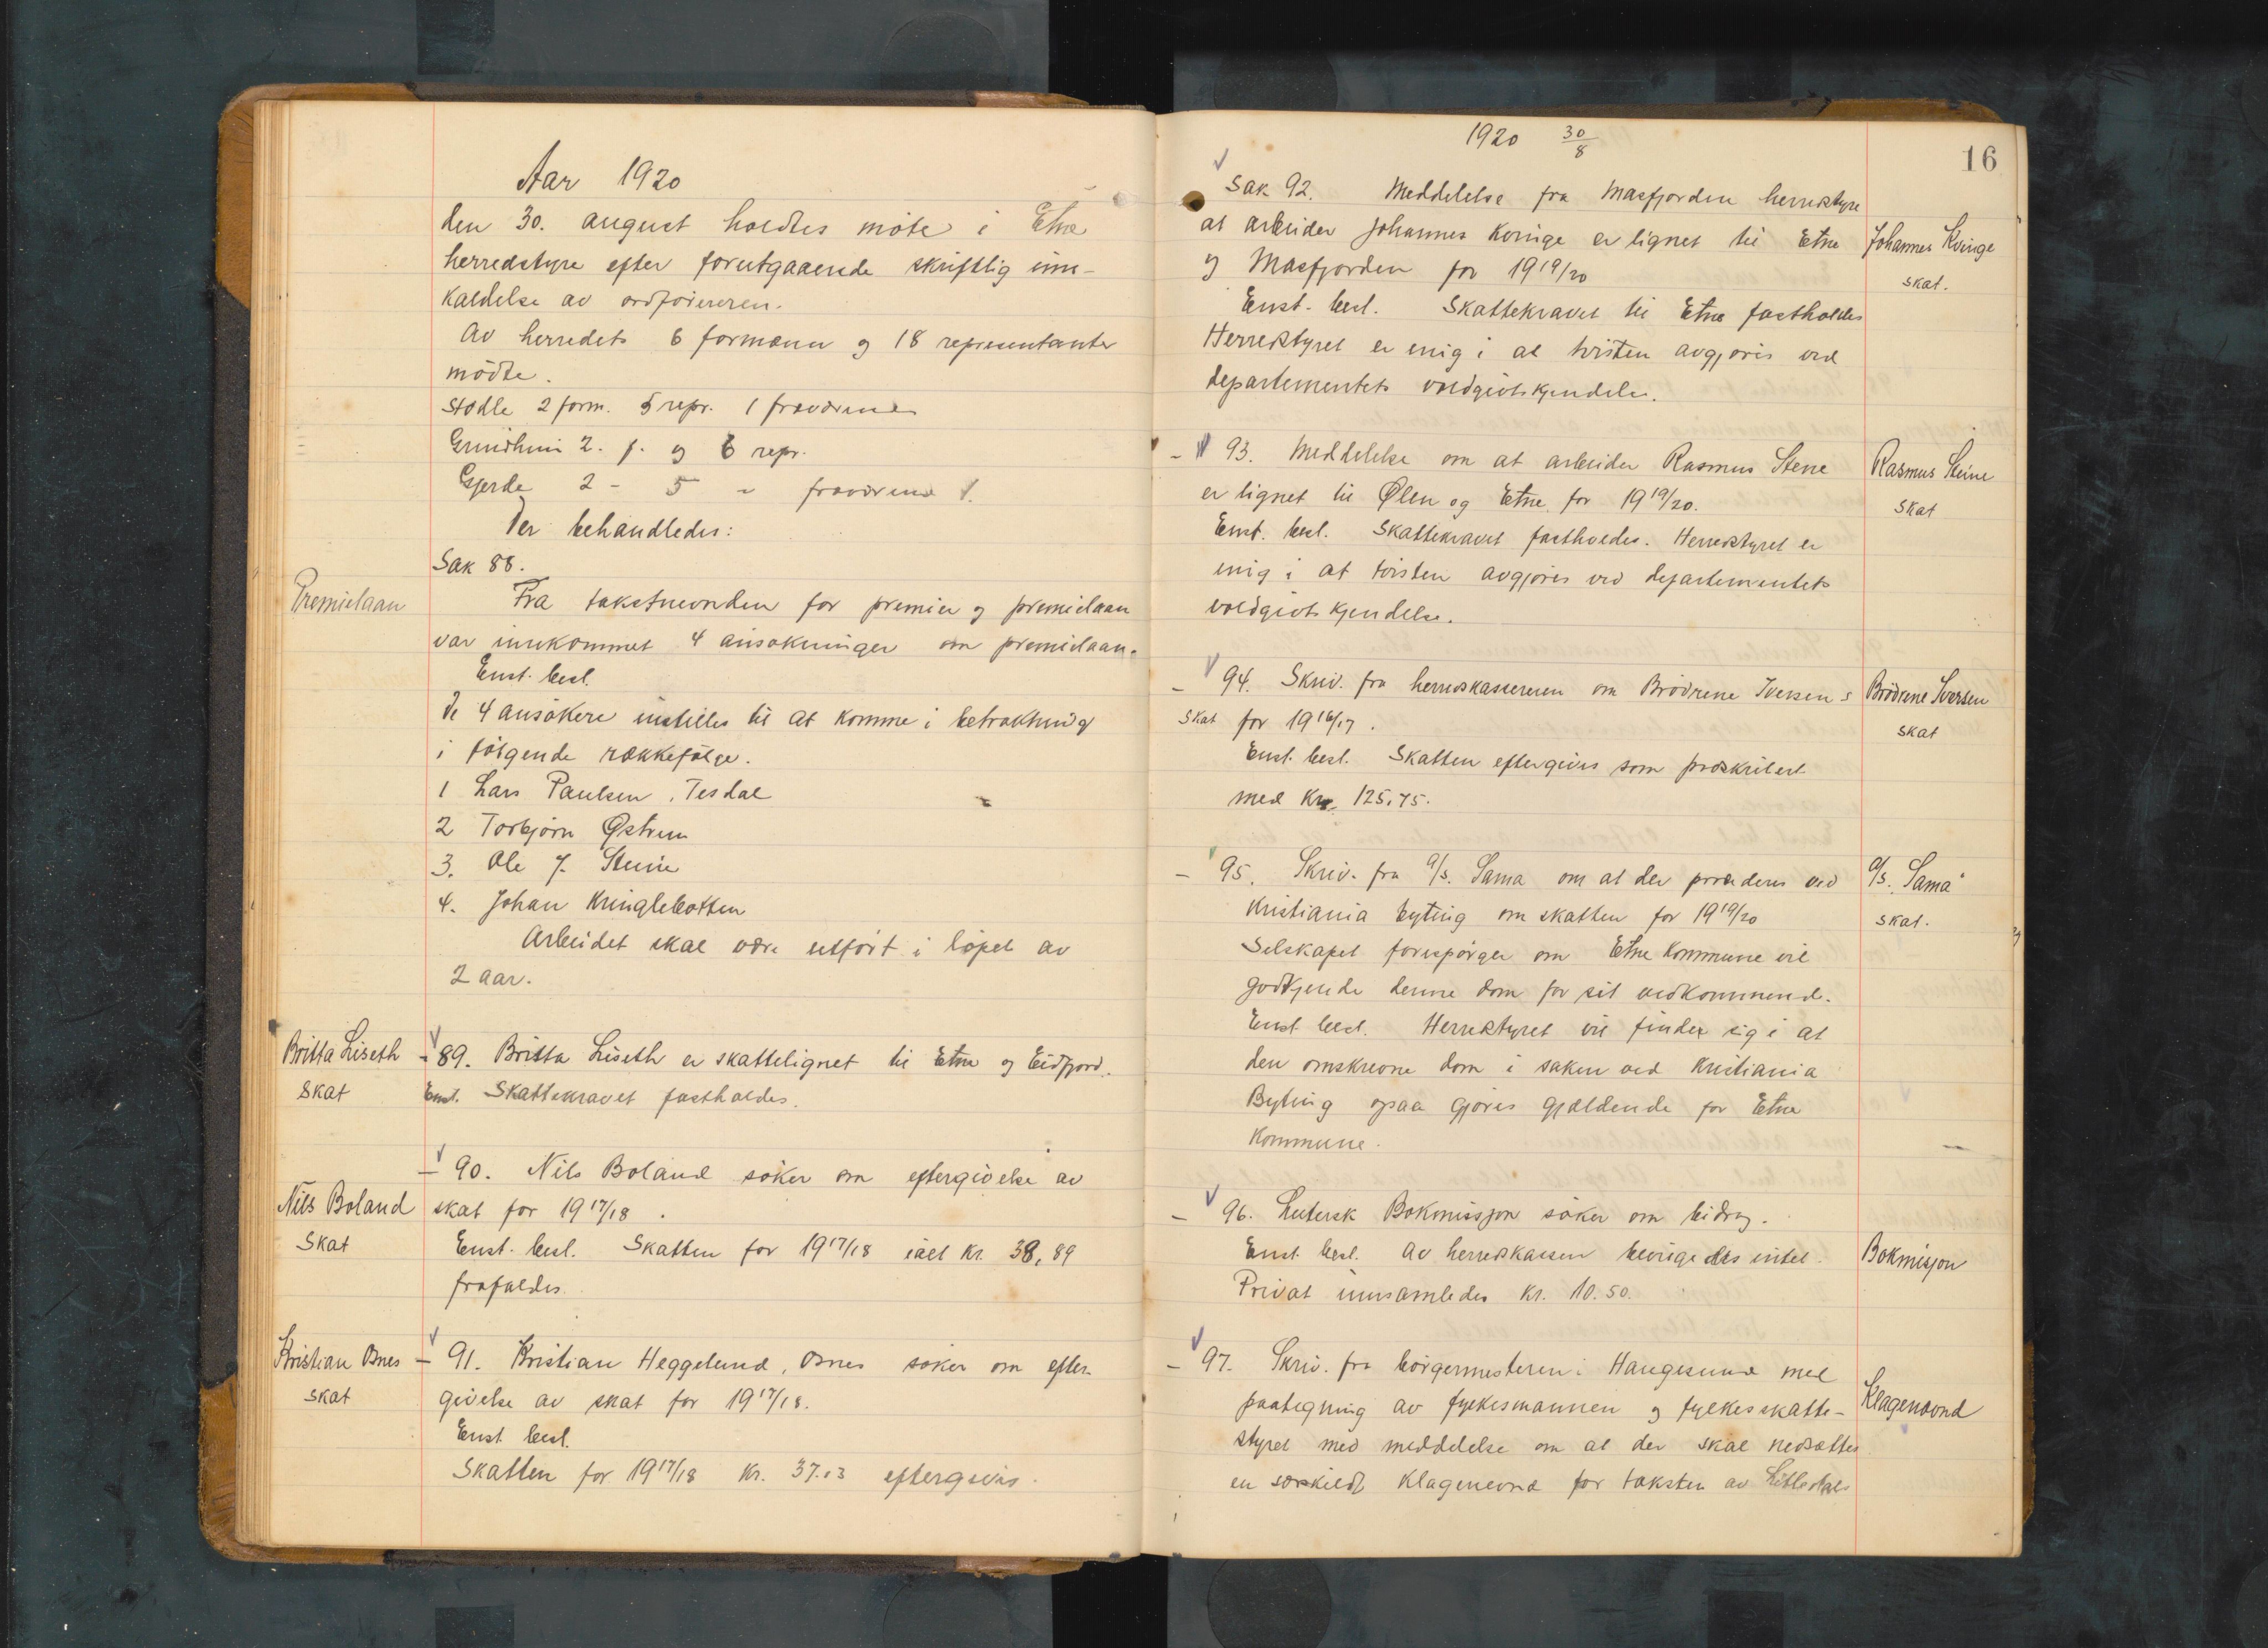 Aar 1920
den 30. august holdtes møte i Etne
herredstyre efter forutgaaende skriftlig inn-
kaldelse av ordføreren.
Av herredets 6 formænn og 18 representanter
mødte.
Stødle 2 form. 5 repr. 1 fraværende
Grindheim 2. f. og 6 repr.
Gjerde 2 - 5 - fraværende 1.
Der behandledes:
Sak 88.
Premielaan
Fra takstnevnden for premier og premielaan
var innkommet 4 ansøkninger om premielaan.
Enst. besl.
De 4 ansøkere instilles til at komme i betraktning
i følgende rækkefølge.
1 Lars Paulsen, Tesdal
2 Torbjørn Østrem
3. Ole J. Steine
4. Johan Kringlebotten
Arbeidet skal være utført i løpet av
2 aar.
Britta Liseth
Skat
- 89. Britta Liseth er skattelignet til Etne og Eidfjord.
Enst. Skattekravet fastholdes.
- 90. Nils Boland søker om eftergivelse av
Nils Boland
Skat
skat for 1917/18.
Enst. besl. Skatten for 1917/18 ialt kr. 38,89
frafaldes.
Kristian Osnes
Skat
- 91. Kristian Heggelund, Osnes søker om efter-
givelse av skat for 1917/18.
Enst besl.
Skatten for 1917/18 kr. 37.13 eftergives.
1920 30/8
16
Sak 92. Meddelelse fra Masfjorden herredstyre
at arbeider Johannes Kvinge er lignet til Etne
Johannes Kvinge
skat.
og Masfjorden for 1919/20
Enst. besl. Skattekravet til Etne fastholdes
Herredstyret er enig i at tvisten avgjøres ved
departementets voldgivtskjendelse.
- 93. Meddelelse om at arbeider Rasmus Stene
Rasmus Steine
skat
er lignet til Ølen og Etne for 1919/20.
Enst. besl. Skattekravet fastholdes. Herredstyret er
enig i at tvisten avgjøres ved departementets
voldgivtskjendelse.
- 94. Skriv. fra herredskassereren om Brødrene Iversens
Brødrene Iversen
skat
skat for 1916/17.
Enst. besl. Skatten eftergives som preskribert
med Kr. 125,75.
- 95. Skriv. fra A/s. Sama om at der procederes ved
A/s. "Sama"
skat.
Kristiania byting om skatten for 1919/20
Selskapet forespørger om Etne kommune vil
godkjende denne dom for sit vedkommende.
Enst besl. Herredstyret vil finde sig i at
den omskrevne dom i saken ved Kristiania
Byting ogsaa gjøres gjældende for Etne
Kommune.
- 96. Lutersk Bokmissjon søker om bidrag.
Enst besl. Av herredskassen bevilgedes intet.
Bokmisjon
Privat innsamledes kr. 10.50.
- 97. Skriv. fra borgermesteren i Haugesund med
Klagenevnd
paategning av fylkesmannen og fylkesskatte-
styret med meddelelse om at der skal nedsættes
en særskildt klagenevnd for taksten av Litledals